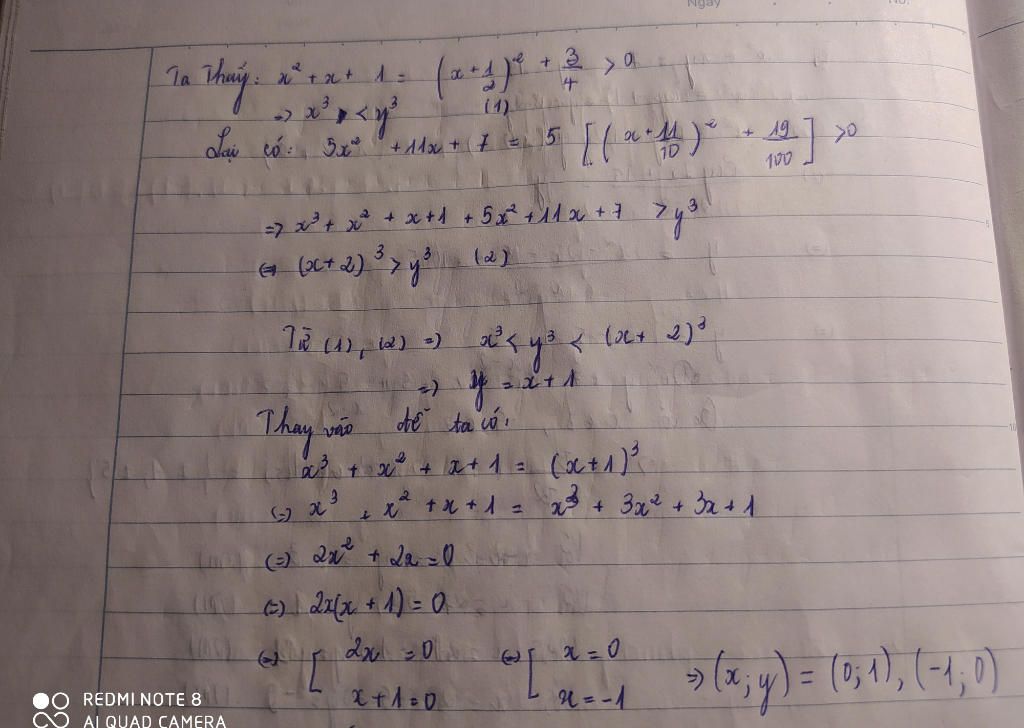 Ngày No.
Ta thấy: x² + x + 1 = (x + 1/2)² + 3/4 > 0
=> x³ < y³ (1)
Lại có: 5x² + 11x + 7 = 5 [(x + 11/10)² + 19/100] > 0
=> x³ + x² + x + 1 + 5x² + 11x + 7 > y³
<=> (x + 2)³ > y³ (2)
Từ (1), (2) => x³ < y³ < (x + 2)³
=> y = x + 1
Thay vào đề ta có:
x³ + x² + x + 1 = (x + 1)³
(=) x³ + x² + x + 1 = x³ + 3x² + 3x + 1
(=) 2x² + 2x = 0
(=) 2x(x + 1) = 0
(=) [ 2x = 0 (=) [ x = 0 => (x; y) = (0; 1), (-1; 0)
x + 1 = 0 x = -1
REDMI NOTE 8
AI QUAD CAMERA